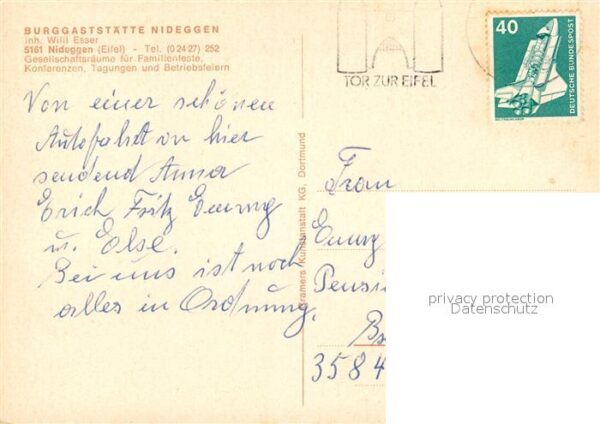 BURGGASTSTÄTTE NIDEGGEN
Inh. Willi Esser
5161 Nideggen (Eifel) - Tel. (0 24 27) 252
Gesellschaftsräume für Familienfeste,
Konferenzen, Tagungen und Betriebsfeiern
Von einer schönen
Autofahrt von hier
sendend Anna
Erich Fritz Emmy
u. Else.
Bei uns ist noch
alles in Ordnung.
Cramers Kunstanstalt KG. Dortmund
TOR ZUR EIFEL
40
DEUTSCHE BUNDESPOST
Frau
Emmy
Pensio
3584
privacy protection
Datenschutz